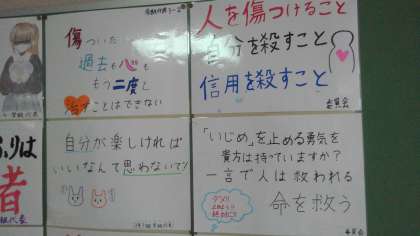 学級代表
傷ついた
過去も心も
もう二度と
治すことはできない
人を傷つけること
自分を殺すこと
信用を殺すこと
委員会
ふりは
者
級代表
自分が楽しければ
いいなんて思わないで!
「いじめ」を止める勇気を
貴方は持っていますか?
一言で人は救われる
命を救う
ダメ!
絶対に!
委員会